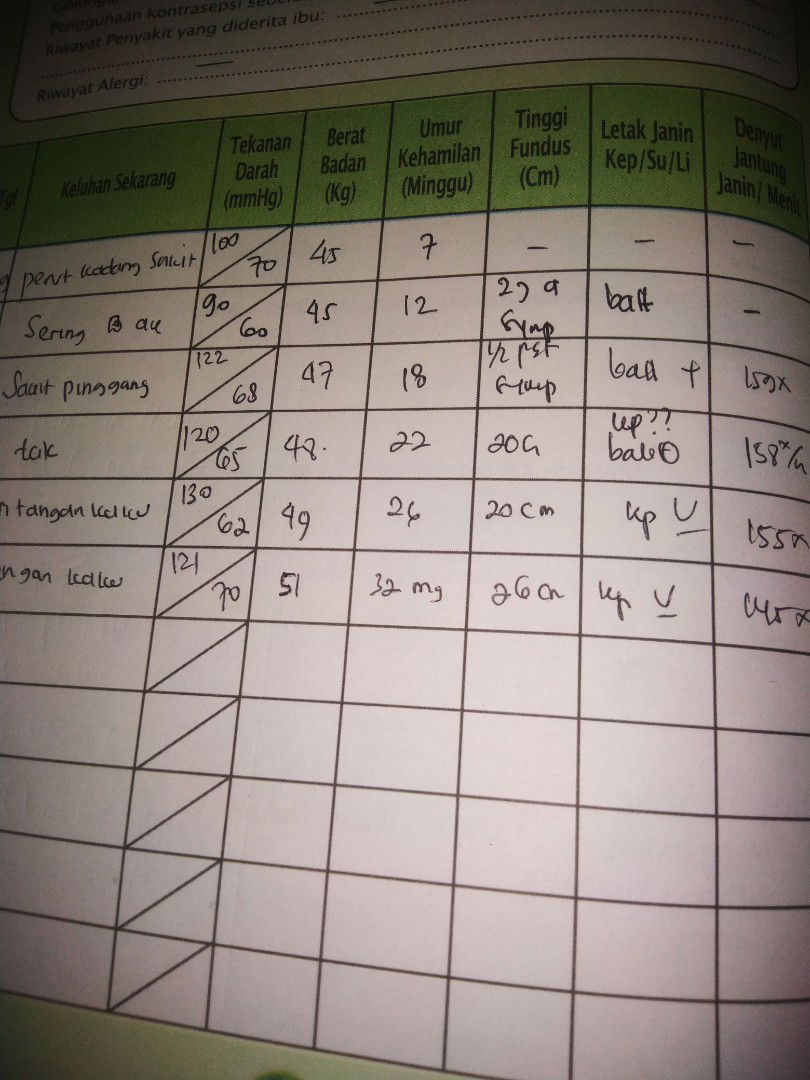 Penggunaan kontrasepsi
Riwayat Penyakit yang diderita ibu:
Riwayat Alergi:
Tgl
Keluhan Sekarang
Tekanan Darah (mmHg)
Berat Badan (Kg)
Umur Kehamilan (Minggu)
Tinggi Fundus (Cm)
Letak Janin Kep/Su/Li
Denyut Jantung Janin/ Menit
perut kadang Sakit 100/70 45 7 — — —
Sering B ak 90/60 45 12 ball —
Sakit pinggang 122/68 47 18 1/2 pst Symp ball + 159x
tak 120/65 48. 22 20 kep?? 158x/
tangan kaku 130/62 49 26 20 cm kp U 155x
ngan kaku 121/70 51 32 mg 26 cm kp U 145x